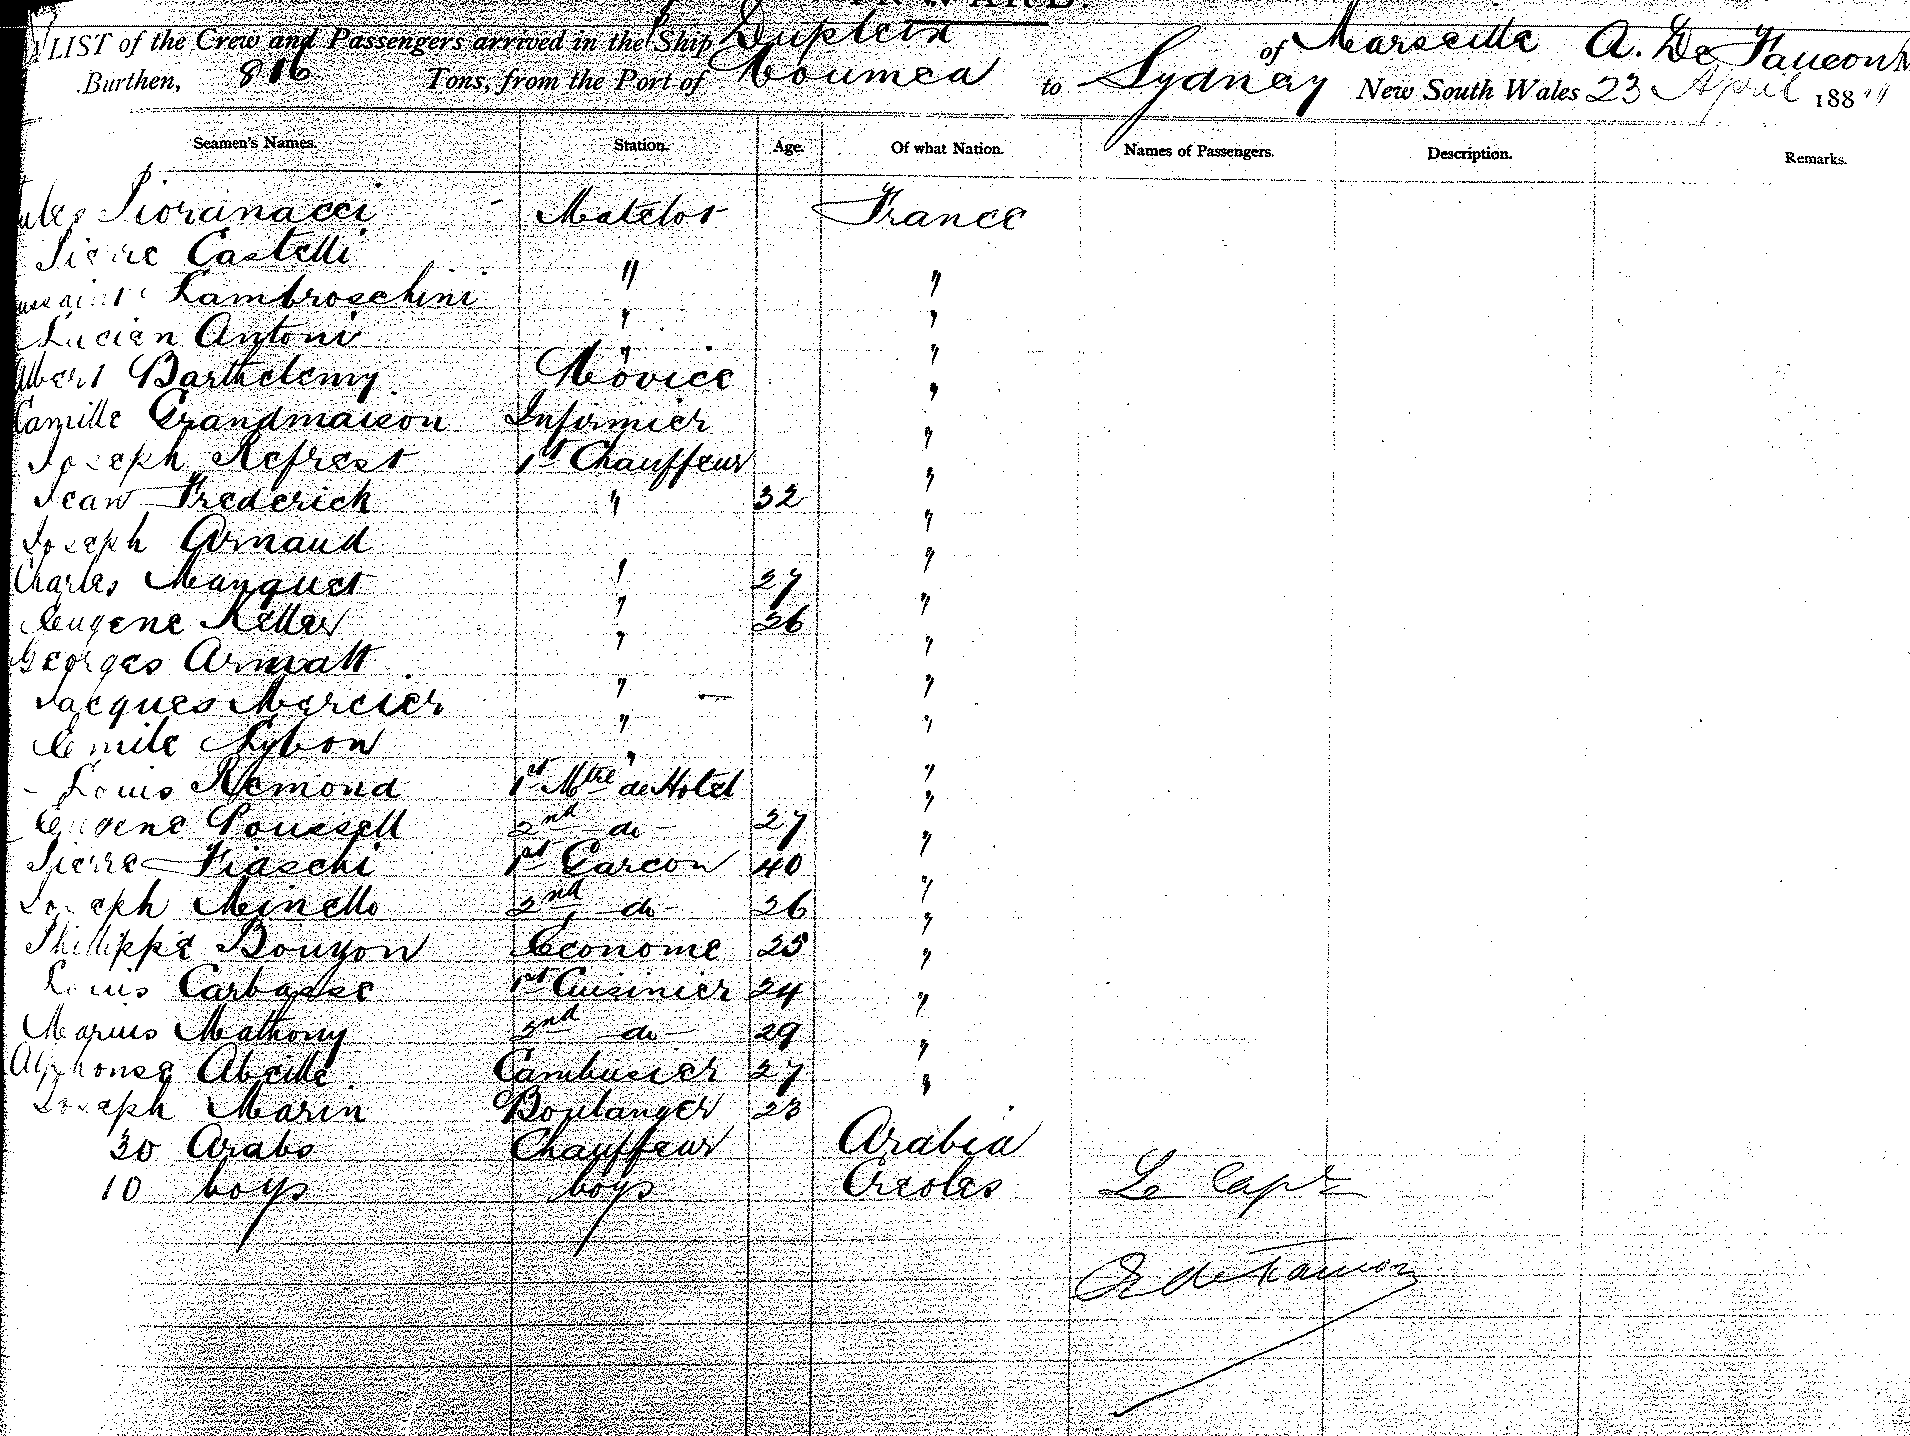 INWARD.
LIST of the Crew and Passengers arrived in the Ship Dupleix of Marseille A. De Faucon
Burthen, 816 Tons, from the Port of Noumea to Sydney New South Wales 23 April 188
Seamen's Names. Station. Age. Of what Nation. Names of Passengers. Description. Remarks.
Jules Fioranacci Matelot France
Pierre Castelli " "
Lambroschini " "
Lucien Antoni " "
Albert Barthelemy Novice "
Camille Grandmaison Infirmier "
Joseph Refrest 1st Chauffeur "
Jean Frederick " 32 "
Joseph Arnaud " "
Charles Manquet " 27 "
Eugene Keller " 36 "
Georges Armatt " "
Jacques Mercier " "
Emile Nybon " "
Louis Remond 1st Mtre de Hotel "
Eugene Poussell 2nd do 27 "
Pierre Fiaschi 1st Garcon 40 "
Joseph Minello 2nd do 26 "
Phillippe Bouyon Econome 25 "
Louis Carbasse 1st Cuisinier 24 "
Marius Mathony 2nd do 29 "
Alphonse Abeille Cambusier 27 "
Joseph Marin Boulanger 23
30 Arabs Chauffeur Arabia
10 boys boys Creoles Le Capt
de Faucon